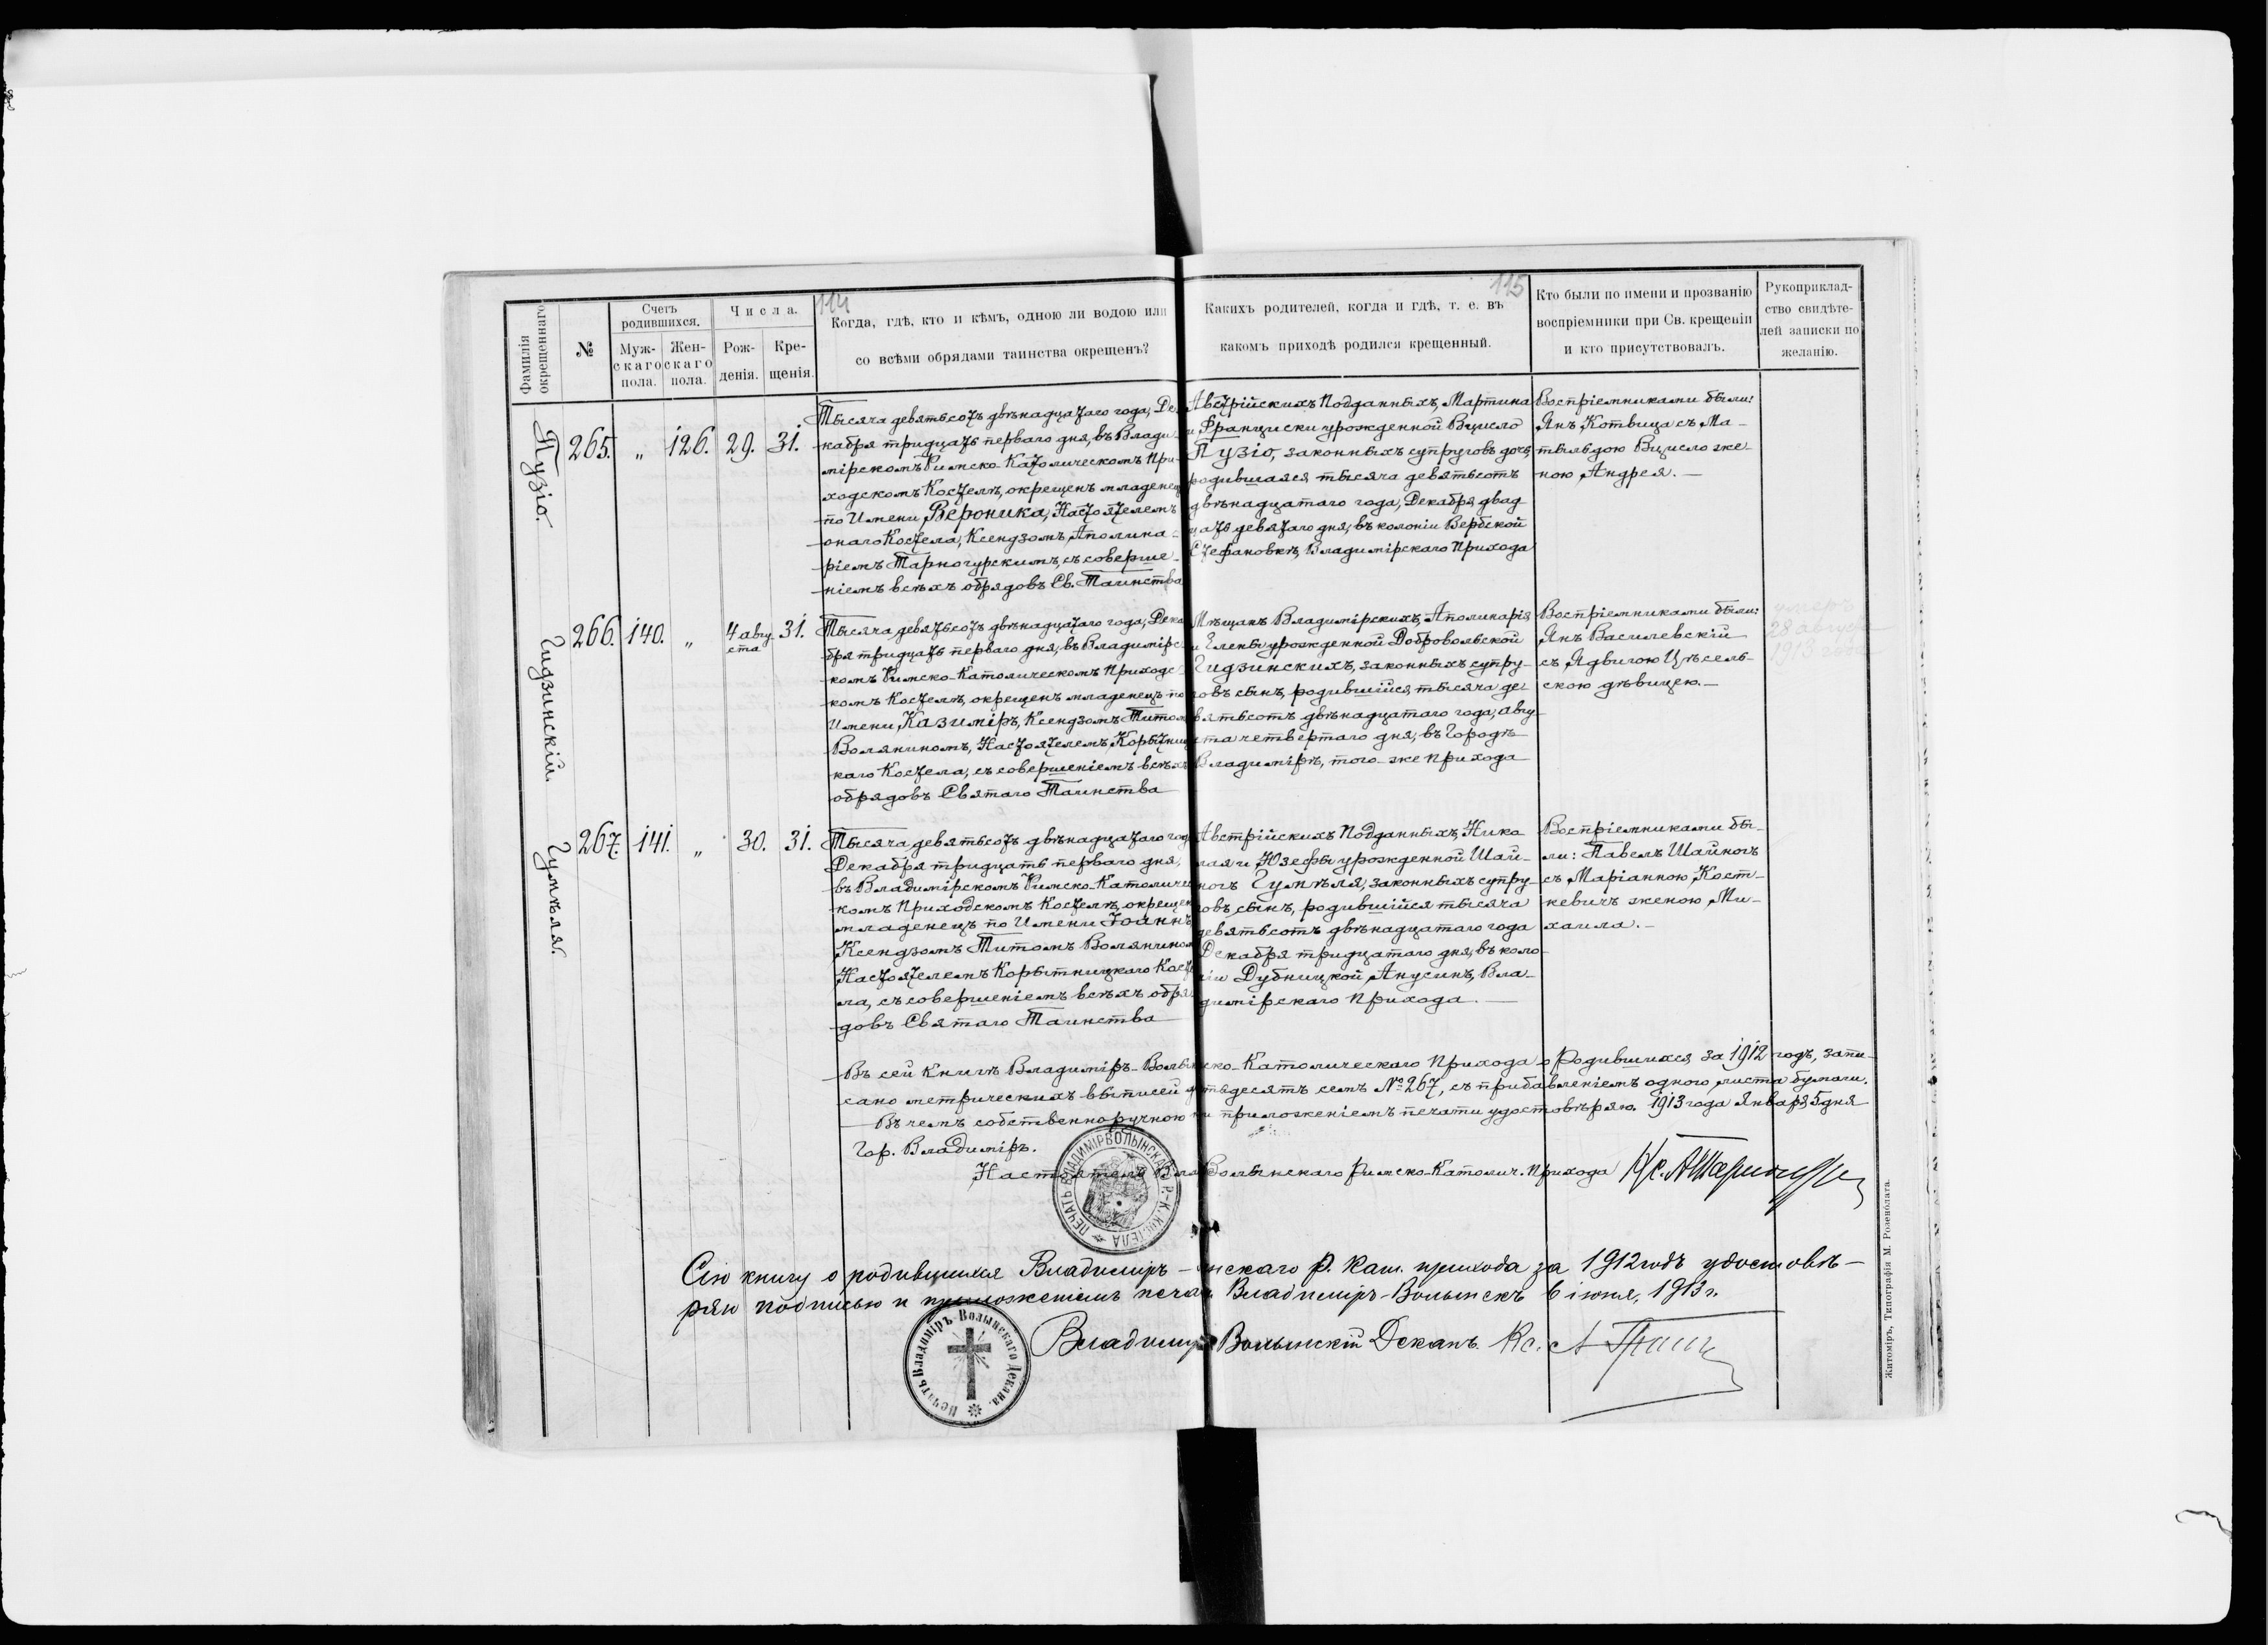 114
115
Фамилія окрещеннаго
№
Счетъ родившихся.
Муж- скаго пола.
Жен- скаго пола.
Числа.
Рож- денія.
Кре- щенія.
Когда, гдѣ, кто и кѣмъ, одною ли водою или
со всѣми обрядами таинства окрещенъ?
Какихъ родителей, когда и гдѣ, т. е. въ
какомъ приходѣ родился крещенный.
Кто были по имени и прозванію
воспріемники при Св. крещеніи
и кто присутствовалъ.
Рукоприклад-
ство свидѣте-
лей записки по
желанію.
Пузіо.
265. „ 126. 29. 31.
Тысяча девятьсотъ двѣнадцатаго года, Де-
кабря тридцать перваго дня, въ Влади-
мірскомъ Римско-Католическомъ При-
ходскомъ Костелѣ, окрещенъ младенец
по Имени Вероника, Настоятелемъ
онаго Костела, Ксендзомъ Аполина-
ріемъ Тарногурскимъ, съ соверше-
ніемъ всѣхъ обрядовъ Св. Таинства
Австрійскихъ Подданныхъ, Мартина
и Франциски урожденной Вцисло
Пузіо, законныхъ супруговъ дочь,
родившаяся тысяча девятьсотъ
двѣнадцатаго года, Декабря двад
цать девятаго дня, въ колоніи Вербской
Стефановкѣ, Владимірскаго Прихода
Воспріемниками были:
Янъ Котвица съ Ма-
тыльдою Вцисло же-
ною Андрея. —
Гидзинскій.
266. 140. „ 4 авгу ста 31.
Тысяча девятьсотъ двѣнадцатаго года, Дека
бря тридцать перваго дня, въ Владимірс-
комъ Римско-Католическомъ Приходс-
комъ Костелѣ, окрещенъ младенецъ по
Имени Казиміръ, Ксендзомъ Титом
Воляниномъ, Настоятелемъ Корытниц
каго Костела, съ совершеніемъ всѣхъ
обрядовъ Святаго Таинства
Мѣщанъ Владимірскихъ, Аполинарія
и Елены урожденной Добровольской
Гидзинскихъ, законныхъ супру-
говъ сынъ, родившійся тысяча де-
вятьсотъ двѣнадцатаго года, Авгу-
ста четвертаго дня, въ Городѣ
Владимірѣ, того-же прихода
Воспріемниками были:
Янъ Василевскій
съ Ядвигою Цѣсель-
скою дѣвицею. —
умеръ
28 августа
1913 года
Гумѣля.
267. 141. „ 30. 31.
Тысяча девятьсотъ двѣнадцатаго год
Декабря тридцать перваго дня,
въ Владимірскомъ Римско-Католичес
комъ Приходскомъ Костелѣ, окрещен
младенецъ по Имени Іоаннъ
Ксендзомъ Титомъ Воляниномъ
Настоятелемъ Корытницкаго Косте
ла, съ совершеніемъ всѣхъ обря
довъ Святаго Таинства
Австрійскихъ Подданныхъ, Нико
лая и Юзефы урожденной Шай-
ногъ Гумѣля, законныхъ супру-
говъ сынъ, родившійся тысяча
девятьсотъ двѣнадцатаго года
Декабря тридцатаго дня, въ коло
ніи Дубницкой Анусинъ, Вла-
димірскаго Прихода. —
Воспріемниками бы-
ли: Павелъ Шайногъ
съ Маріанною Кост-
кевичъ женою Ми-
хаила. —
Въ сей Книгѣ Владиміръ-Волын ско-Католическаго Прихода о Родившихся за 1912 годъ, запи-
сано метрическихъ выписей тьдесятъ семь № 267, съ прибавленіемъ одного листа бумаги.
Въ чемъ собственноручною и приложеніемъ печати удостовѣряю. 1913 года Января 5 дня
Гор. Владиміръ.
Настоятель Вла Волынскаго Римско-Католич. Прихода Кс. А Тарногурскі
ПЕЧАТЬ ВЛАДИМІРВОЛЫНСКА Р.-К. КОСТЕЛА
Сію книгу о родившихся Владиміръ- нскаго р. кат. прихода за 1912 годъ удостовѣ-
ряю подписью и приложеніемъ печат Владиміръ-Волынскъ 6 іюня, 1913 г.
Владимір Волынскій Деканъ Кс. А
Печать Владиміръ-Волынскаго Декана.
Житоміръ, Типографія М. Розенблата.